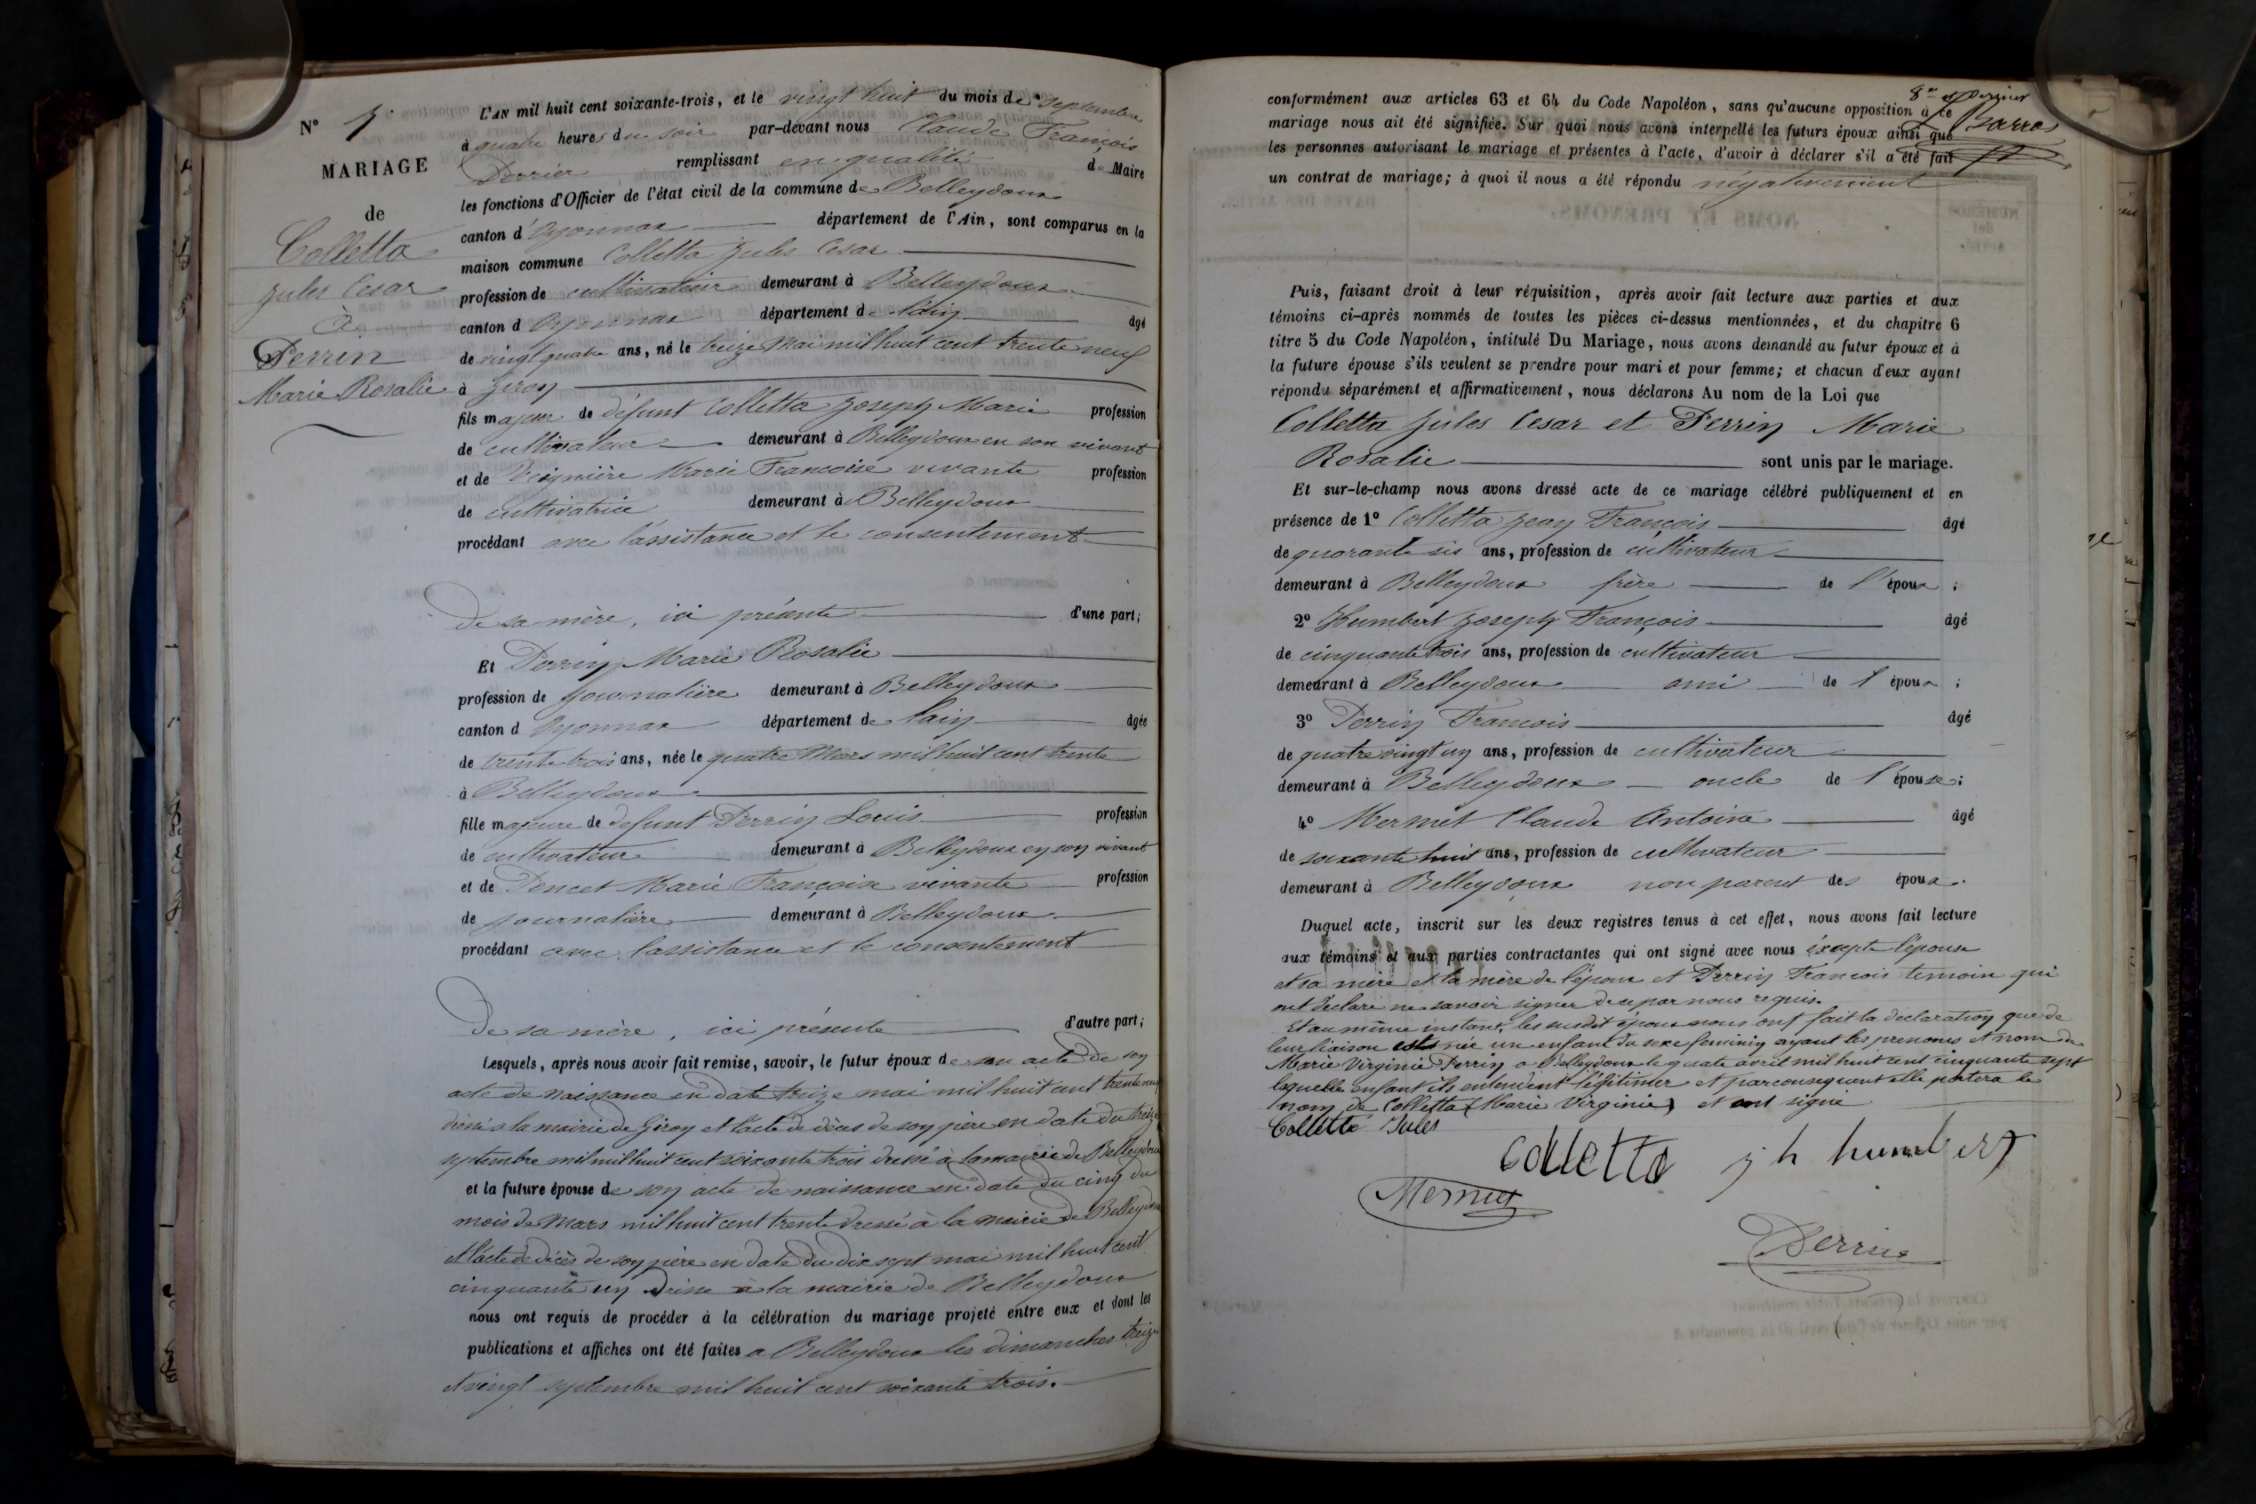 N° 5
MARIAGE
de
Colletta
Jules Cesar
à
Perrin
Marie Rosalie
L'AN mil huit cent soixante-trois, et le vingt huit du mois de Septembre
à quatre heures du soir par-devant nous Claude François
Perrier remplissant en qualité de Maire
les fonctions d'Officier de l'état civil de la commune de Belleydoux
canton d'Oyonnax département de l'Ain, sont comparus en la
maison commune Colletta Jules Cesar
profession de cultivateur demeurant à Belleydoux
canton d Oyonnax département de l'ain âgé
de vingt quatre ans, né le treize Mai mil huit cent trente neuf
à Giron
fils majeur de défunt Colletta Joseph Marie profession
de cultivateur demeurant à Belleydoux en son vivant
et de Marie Francoise vivante profession
de cultivatrice demeurant à Belleydoux
procédant avec l'assistance et le consentement
de sa mère, ici présente d'une part;
Et Perrin Marie Rosalie
profession de journalière demeurant à Belleydoux
canton d Oyonnax département de l'ain âgée
de trente trois ans, née le quatre Mars mil huit cent trente
à Belleydoux
fille majeure de defunt Perrin Louis profession
de cultivateur demeurant à Belleydoux en son vivant
et de Poncet Marie Françoise vivante profession
de journalière demeurant à Belleydoux
procédant avec l'assistance et le consentement
de sa mère, ici présente d'autre part;
Lesquels, après nous avoir fait remise, savoir, le futur époux de son acte de son
acte de naissance en date treize mai mil huit cent trente neuf
dréssé a la mairie de Giron et l'acte de décès de son père en date du treize
septembre mil mil huit cent soixante trois dressé à la mairie de Belleydoux
et la future épouse de son acte de naissance en date du cinq du
mois de Mars mil huit cent trente dressé à la mairie de Belleydoux
et l'acte de décès de son père en date du dix sept mai mil huit cent
cinquante un à la mairie de Belleydoux
nous ont requis de procéder à la célébration du mariage projeté entre eux et dont les
publications et affiches ont été faites a Belleydoux les dimanches treize
et vingt septembre mil huit cent soixante trois.
8me et dernier
Barras
conformément aux articles 63 et 64 du Code Napoléon, sans qu'aucune opposition à ce
mariage nous ait été signifiée. Sur quoi nous avons interpellé les futurs époux ainsi que
les personnes autorisant le mariage et présentes à l'acte, d'avoir à déclarer s'il a été fait
un contrat de mariage; à quoi il nous a été répondu négativement
Puis, faisant droit à leur réquisition, après avoir fait lecture aux parties et aux
témoins ci-après nommés de toutes les pièces ci-dessus mentionnées, et du chapitre 6
titre 5 du Code Napoléon, intitulé Du Mariage, nous avons demandé au futur époux et à
la future épouse s'ils veulent se prendre pour mari et pour femme; et chacun d'eux ayant
répondu séparément et affirmativement, nous déclarons Au nom de la Loi que
Colletta Jules Cesar et Perrin Marie
Rosalie sont unis par le mariage.
Et sur-le-champ nous avons dressé acte de ce mariage célébré publiquement et en
présence de 1° Colletta Jean François âgé
de quarante six ans, profession de cultivateur
demeurant à Belleydoux frère de l'époux ;
2° Humbert Joseph François âgé
de cinquante trois ans, profession de cultivateur
demeurant à Belleydoux ami de l'époux ;
3° Perrin Francois âgé
de quatre vingt un ans, profession de cultivateur
demeurant à Belleydoux oncle de l'épouse;
4° Mermet Claude Antoine âgé
de soixante huit ans, profession de cultivateur
demeurant à Belleydoux non parent des époux.
Duquel acte, inscrit sur les deux registres tenus à cet effet, nous avons fait lecture
aux témoins et aux parties contractantes qui ont signé avec nous éxcepté l'épouse
et sa mère et la mère de l'époux et Perrin Francois temoin qui
ont déclaré ne savoir signer de ce par nous requis.
Et au même instant, les susdit époux nous ont fait la declaration que de
leur liaison est née un enfant du sexe feminin ayant les prenoms et nom de
Marie Virginie Perrin a Belleydoux le quatre avril mil huit cent cinquante sept
lequelle enfant ils entendent légitimer et par consequent elle portera le
nom de Colletta (Marie Virginie) et ont signé
Colletta Jules
Colletta jh humbert
Mermet
Perrier